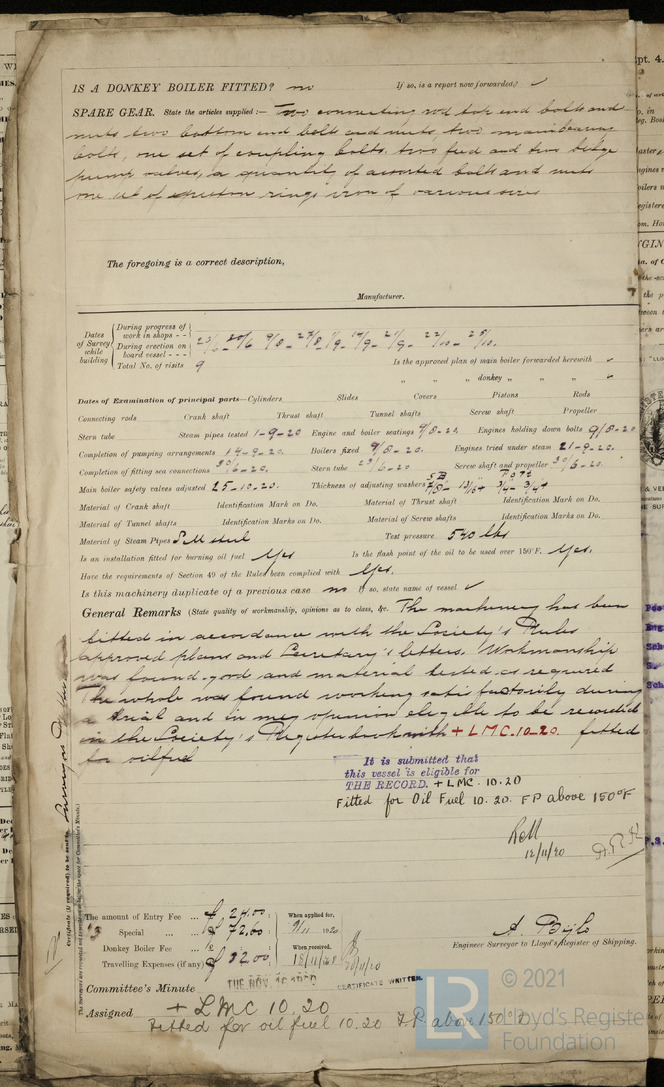 IS A DONKEY BOILER FITTED? no If so, is a report now forwarded? ✓
SPARE GEAR. State the articles supplied :— Two connecting rod top end bolts and
nuts two bottom end bolts and nuts, two main bearing
bolts, one set of coupling bolts, two feed and two bilge
pump valves, a quantity of assorted bolts and nuts
one set of piston rings iron of various sizes
The foregoing is a correct description,
Manufacturer.
Dates of Survey while building
During progress of work in shops - -
During erection on board vessel - - -
Total No. of visits 9
Is the approved plan of main boiler forwarded herewith ✓
" " " donkey " " " ✓
Dates of Examination of principal parts—Cylinders Slides Covers Pistons Rods
Connecting rods Crank shaft Thrust shaft Tunnel shafts Screw shaft Propeller
Stern tube Steam pipes tested 1-9-20 Engine and boiler seatings 9/8-20. Engines holding down bolts 9/8-20
Completion of pumping arrangements 14-9-20. Boilers fixed 9/8-20. Engines tried under steam 21-9-20.
Completion of fitting sea connections 30/6-20. Stern tube 23/6-20 Screw shaft and propeller 30/6-20.
Main boiler safety valves adjusted 25-10-20. Thickness of adjusting washers
Material of Crank shaft Identification Mark on Do. Material of Thrust shaft Identification Mark on Do.
Material of Tunnel shafts Identification Marks on Do. Material of Screw shafts Identification Marks on Do.
Material of Steam Pipes S.M. steel Test pressure 540 lbs
Is an installation fitted for burning oil fuel Yes Is the flash point of the oil to be used over 150°F. Yes.
Have the requirements of Section 49 of the Rules been complied with Yes.
Is this machinery duplicate of a previous case no If so, state name of vessel ✓
General Remarks (State quality of workmanship, opinions as to class, &c. The machinery has been
fitted in accordance with the Society's Rules
approved plans and Secretary's letters. Workmanship
was found good and material tested as required
The whole was found working satisfactorily during
a trial and in my opinion eligible to be recorded
in the Society's Register book with + LMC. 10-20. fitted
for oilfuel
It is submitted that
this vessel is eligible for
THE RECORD. + LMC. 10.20
Fitted for Oil Fuel 10.20. FP above 150°F
12/11/20
The amount of Entry Fee ... £ 24.00 : When applied for,
Special ... £ 72.00 : 9/11 1920
Donkey Boiler Fee ... £ : When received.
Travelling Expenses (if any) £ 32.00 :
A. Bijlo
Engineer Surveyor to Lloyd's Register of Shipping.
Committee's Minute TUE. NOV. 16 1920 CERTIFICATE WRITTEN.
Assigned + LMC 10.20
Fitted for oil fuel 10.20 F.P. above 150°F
© 2021
Lloyd's Register
Foundation